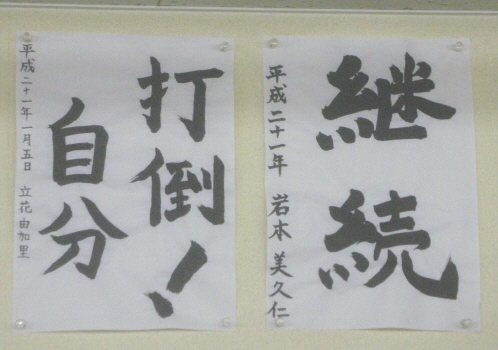 継続
平成二十一年 岩本美久仁
打倒!
自分
平成二十一年一月五日 立花由加里